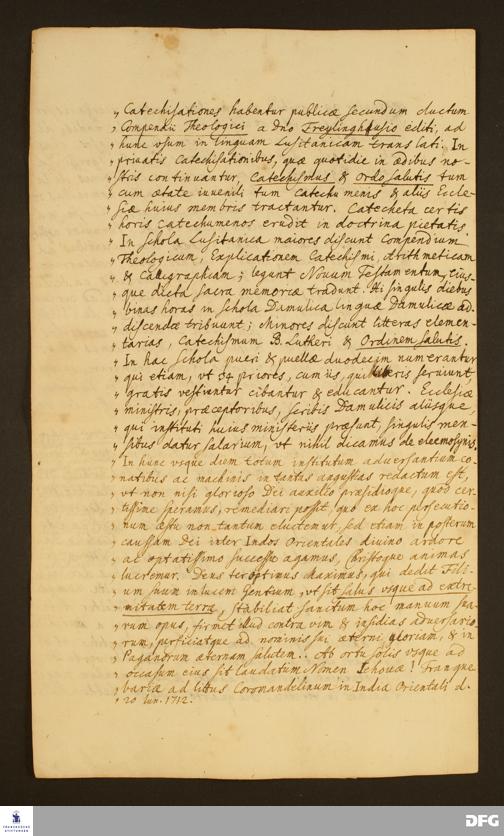 „ Catechisationes habentur publicæ secundum ductum
„ Compendii Theologici a dno Freylinghausio editi, ad
„ hunc vsum in linguam Lusitanicam translati. In
„ priuatis Catechisationibus, quæ quotidie in ædibus no-
„ stris continuantur, Catechismus & ordo salutis tum
„ cum ætate iuuenili tum catechumenis & aliis Eccle-
„ siæ huius membris tractantur. Catecheta certis
„ horis Catechumenos erudit in doctrina pietatis.
„ In schola Lusitanica maiores discunt Compendium
„ Theologicum, Explicationem Catechismi, Arithmeticam
„ & Calligraphiam; legunt Nouum Testamentum, eius-
„ que dicta sacra memoriæ tradunt. Hi singulis diebus
„ binas horas in schola Damulica linguæ Damulicæ ad-
„ discendæ tribuunt; Minores discunt litteras elemen-
„ tarias, Catechismum B. Lutheri & Ordinem salutis.
„ In hac schola pueri & puellæ duodecim numerantur
„ qui etiam, vt 54 priores, cum iis, qui seruiunt,
„ gratis vestiuntur cibantur & educantur. Ecclesiæ
„ ministris, præceptoribus, scribis Damulicis aliisque,
„ qui instituti huius ministeriis præsunt, singulis men-
„ sibus datur salarium, vt nihil dicamus de eleemosynis.
„ In hunc vsque diem totum institutum aduersantium co-
„ natibus ac machinis in tantas angustias redactum est,
„ vt non nisi glorioso Dei auxilio præsidioque, quod cer-
„ tissime speramus, remediari possit, quo ex hoc persecutio-
„ num æstu non tantum eluctemur, sed etiam in posterum
„ caussam Dei inter Indos Orientales diuino ardore
„ ac optatissimo successu agamus, Christoque animas
„ lucremur. Deus ter optimus Maximus, qui dedit Fili-
„ um suum in lucem Gentium, vt sit salus vsque ad extre-
„ mitatem terræ, stabiliat sanctum hoc manuum sua-
„ rum opus, firmet illud contra vim & insidias aduersario-
„ rum, perficiatque ad nominis sui æterni gloriam, & in
„ Paganorum æternam salutem. Ab ortu solis vsque ad
„ occasum eius sit laudatum Nomen Jehouæ! Tranque
„ bariæ ad littus Coromandelinum in India Orientali d.
„ 20 Iun. 1712.
FRANCKESCHE
STIFTUNGEN
DFG